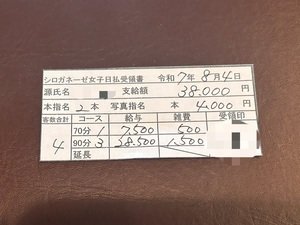 シロガネーゼ女子日払受領書 令和7年8月4日
源氏名 支給額 38,000 円
本指名 2 本 写真指名 本 4,000 円
客数合計 コース 給与 雑費 受領印
4 70分 1 7,500 500
90分 3 28,500 1,500
延長